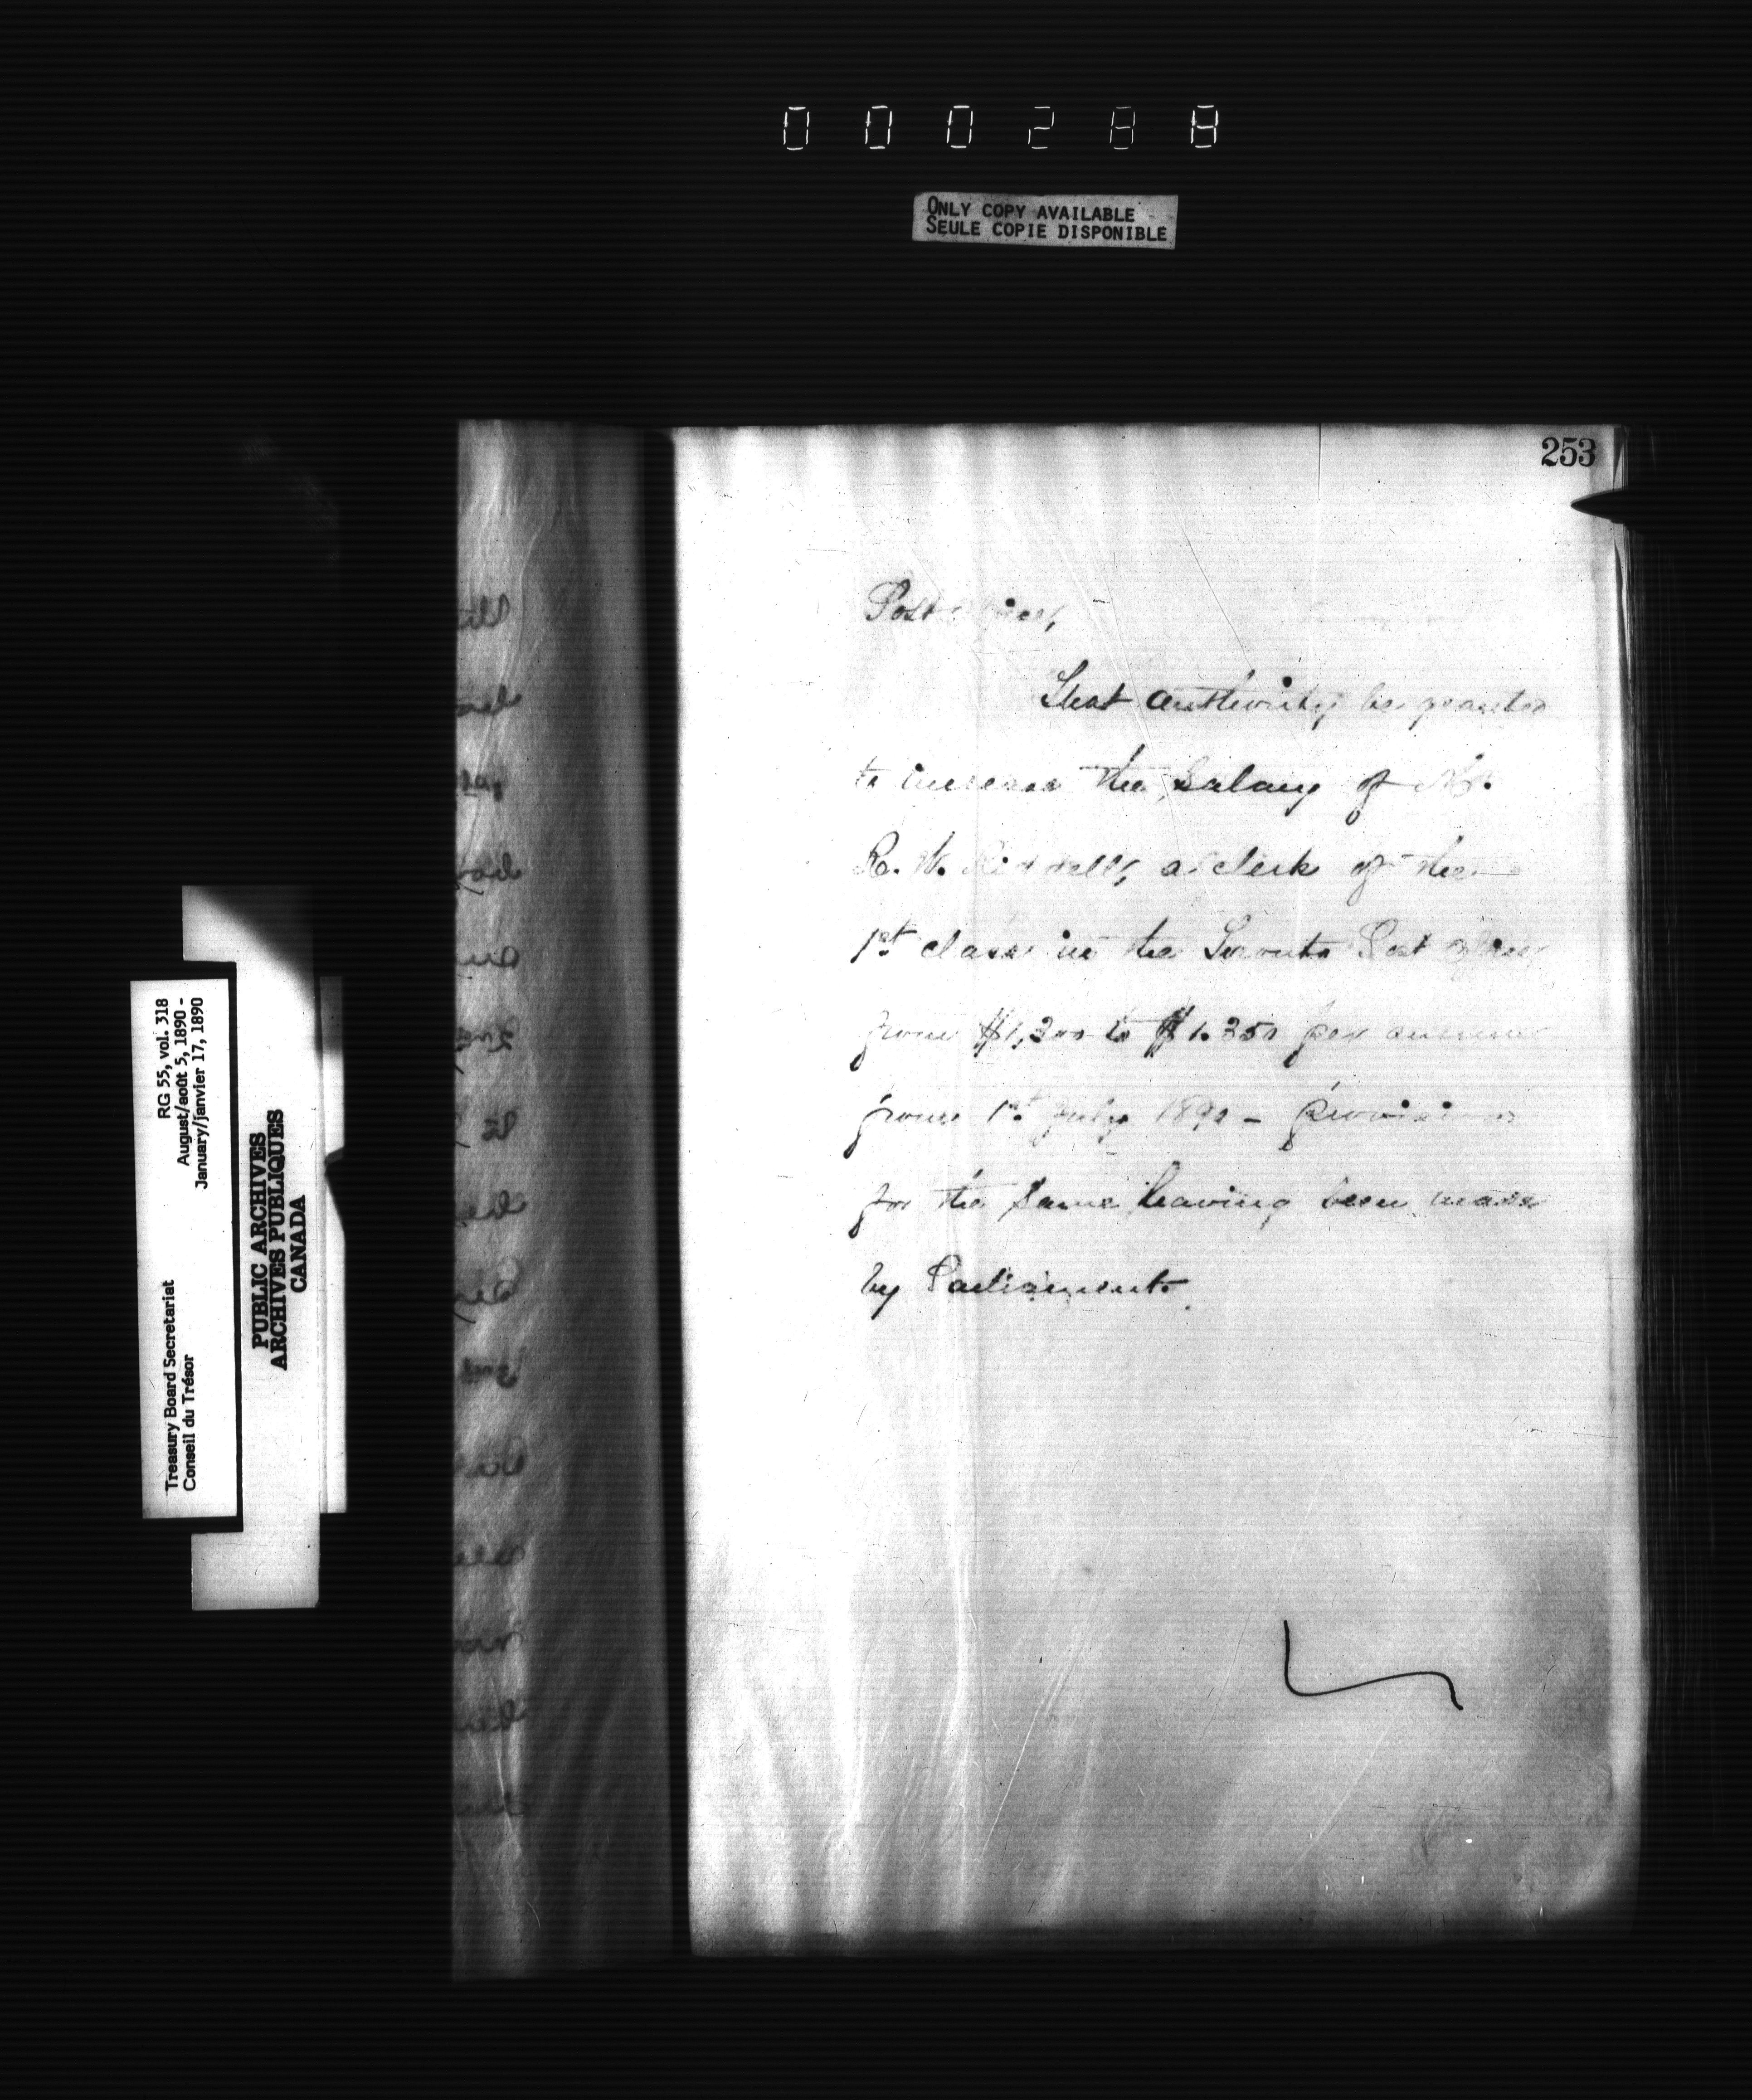 000288
ONLY COPY AVAILABLE
SEULE COPIE DISPONIBLE
253
Post Office,
That authority be granted
to increase the salary of Mr.
R. W. Riddell, a clerk of the
1st class in the Toronto Post Office
from $1,200 to $1.350 per annum
from 1st July 1890 - provision
for the same having been made
by Parliament.
RG 55, vol. 318
August/août 5, 1890 -
January/janvier 17, 1890
Treasury Board Secretariat
Conseil du Trésor
PUBLIC ARCHIVES
ARCHIVES PUBLIQUES
CANADA